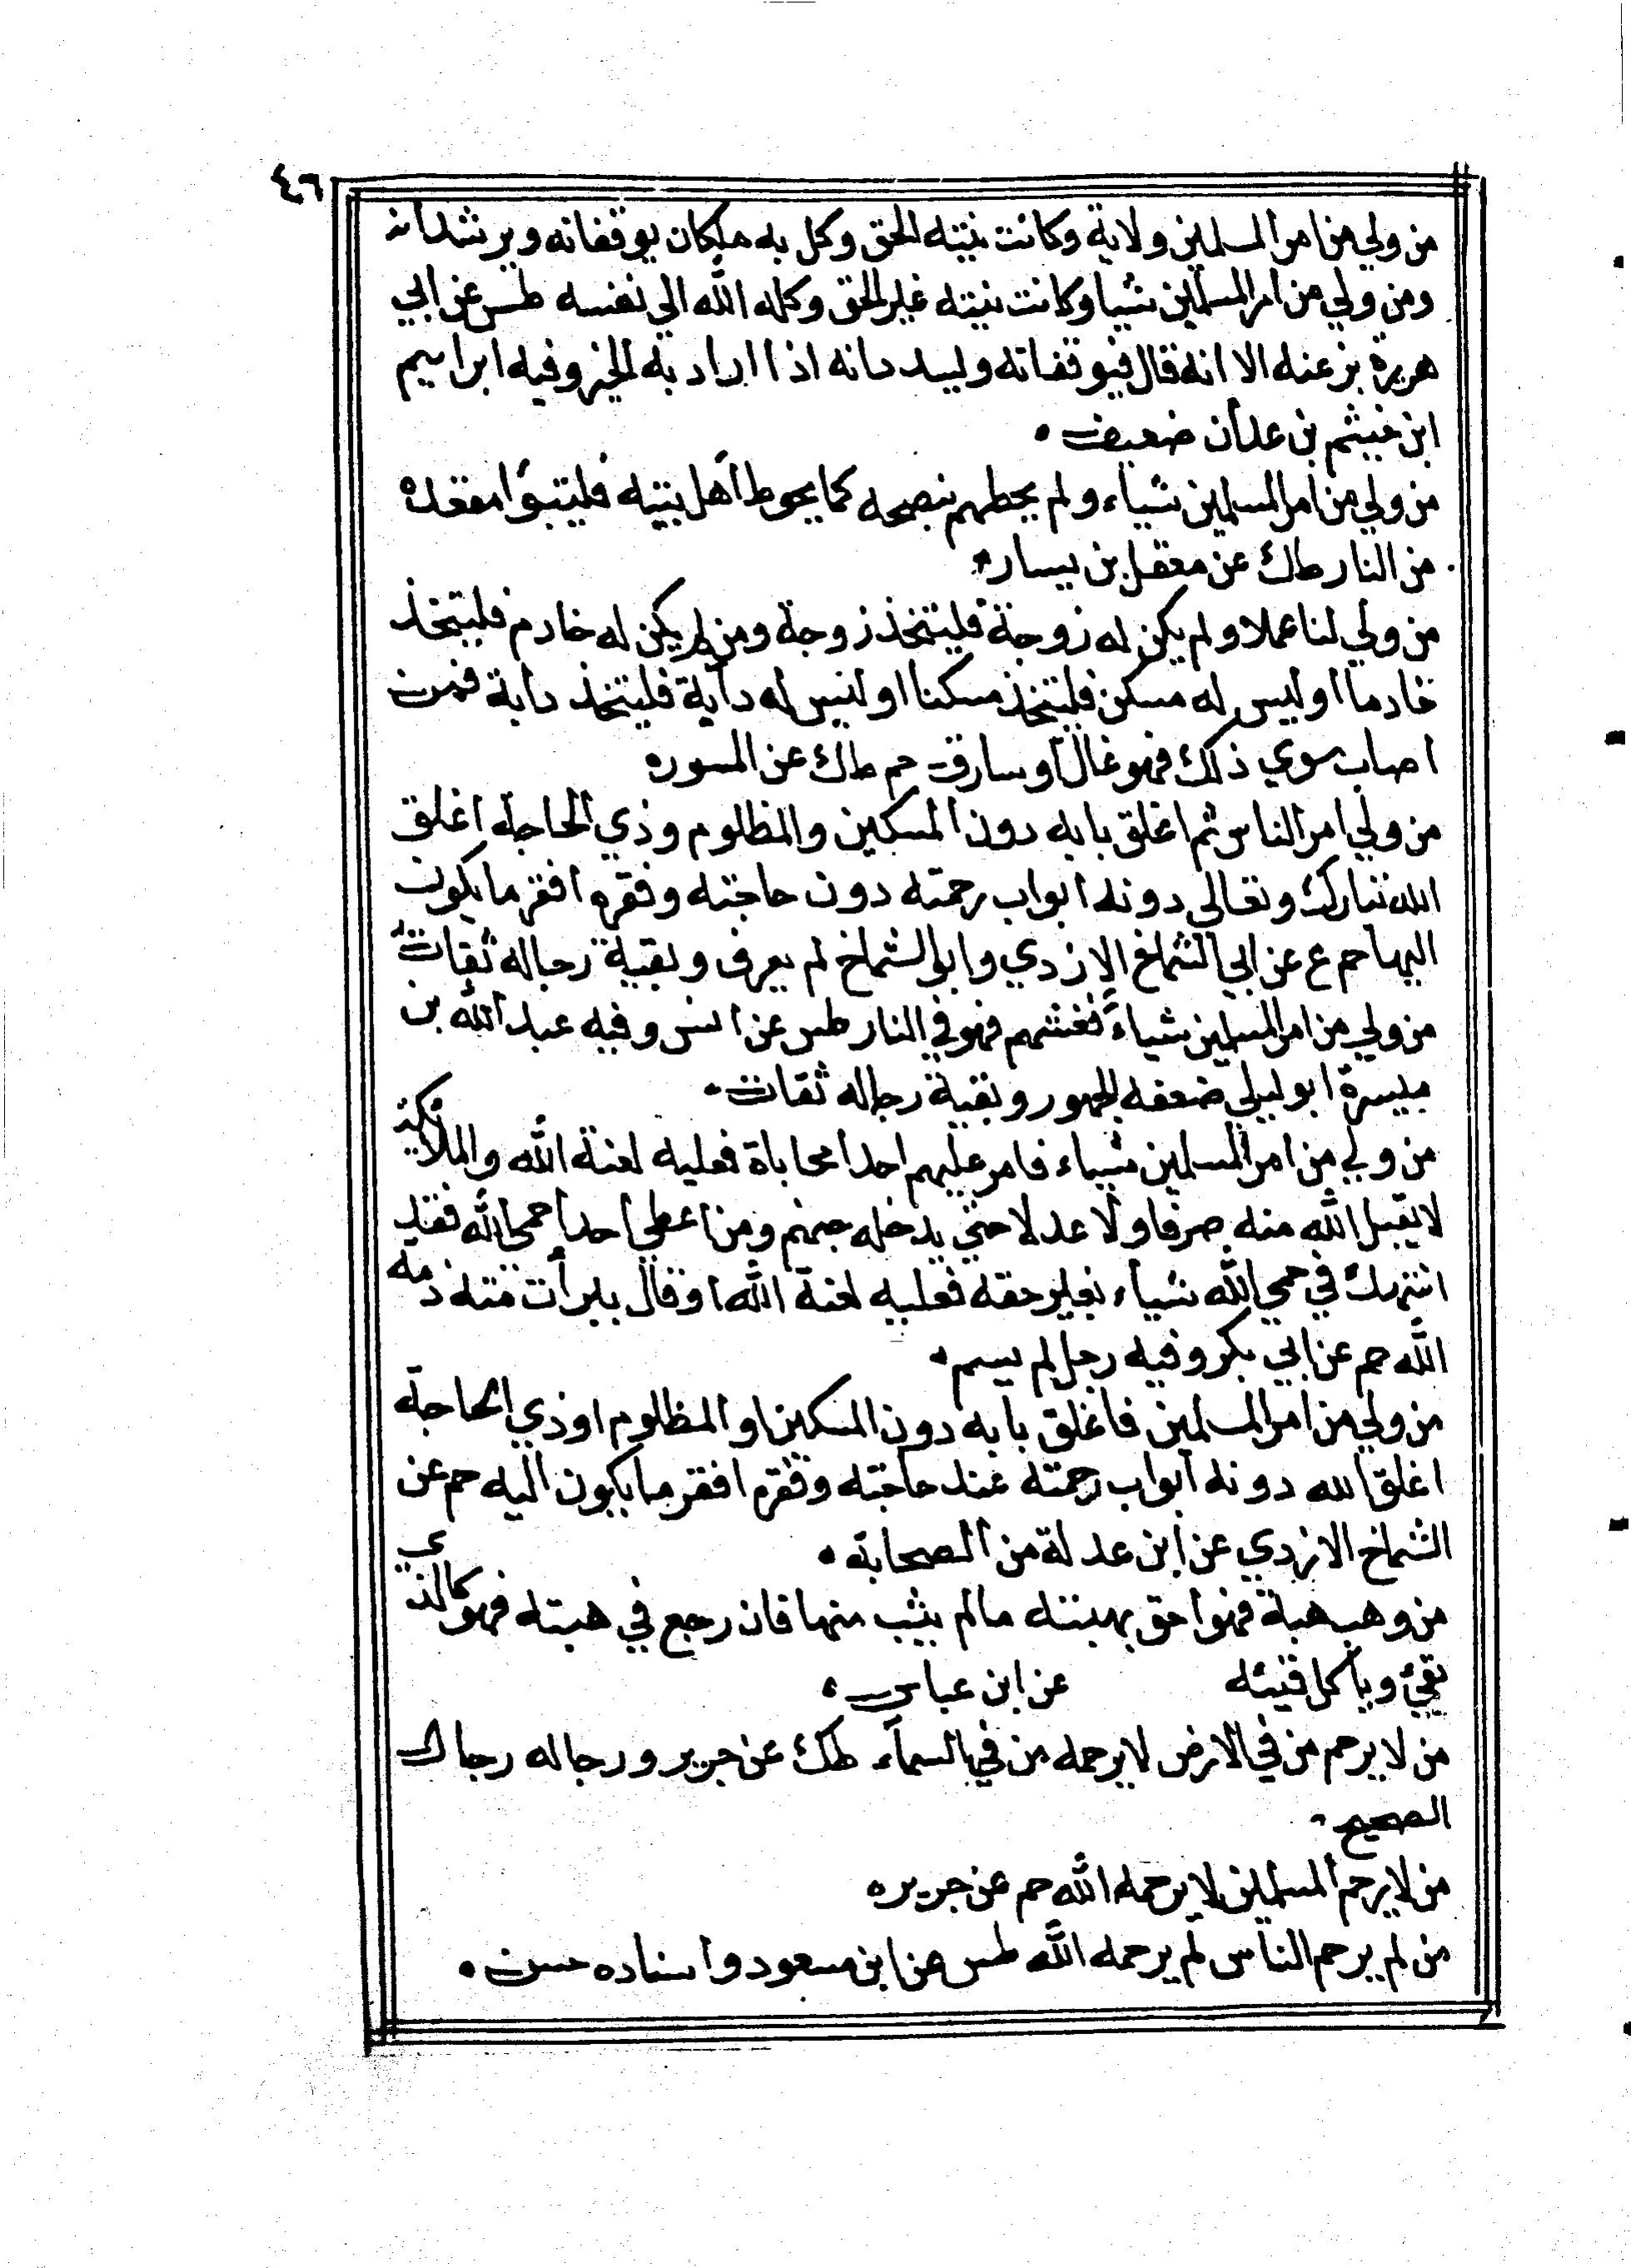 ٤٦
من ولي من امر المسلمين ولاية وكانت نيته الحق وكل به ملكان يوقفانه ويرشدانه
ومن ولي من امر المسلمين شيا وكانت نيته غير الحق وكله الله الي نفسه طس عن ابي
هريرة بز عنه الا انه قال فيوقفانه وليسددانه اذا اراد به الخير وفيه ابراهيم
ابن خيثم بن عدان ضعيف
من ولي من امر المسلمين شياء ولم يحطهم بنصحه كما يحوط اهل بيته فليتبوأ مقعده
من النار طك عن معقل بن يسار
من ولي لنا عملا ولم يكن له زوجة فليتخذ زوجة ومن لم يكن له خادم فليتخذ
خادما او ليس له مسكن فليتخذ مسكنا او ليس له دابة فليتخذ دابة فمن
اصاب سوي ذلك فهو غال او سارق حم طك عن المسوره
من ولي امر الناس ثم اغلق بابه دون المسكين والمظلوم وذي الحاجة اغلق
الله تبارك وتعالى دونه ابواب رحمته دون حاجته وفقره افقر ما يكون
اليها حم ع عن ابي الشماخ الازدي وابو الشماخ لم يعرف وبقية رجاله ثقات
من ولي من امر المسلمين شياء فغشهم فهو في النار طس عن انس وفيه عبد الله بن
ميسرة ابو ليلي ضعفه الجمهور وبقية رجاله ثقات
من ولي من امر المسلمين شياء فامر عليهم احدا محاباة فعليه لعنة الله والملائكة
لا يقبل الله منه صرفا ولا عدلا حتي يدخله جهنم ومن اعطي احدا حمي الله فقد
انتهك في حمي الله شياء بغير حقه فعليه لعنة الله او قال برأت منه ذمه
الله حم عن ابي بكر وفيه رجل لم يسم
من ولي من امر المسلمين فاغلق بابه دون المسكين او المظلوم او ذي الحاجة
اغلق الله دونه ابواب رحمته عند حاجته وفقره افقر ما يكون اليه حم عن
الشماخ الازدي عن ابن عد لة من الصحابة
من وهب هبة فهو احق بهبته ما لم يثب منها فان رجع في هبته فهو كالذي
يقئ ويأكل قيئه عن ابن عباس
من لا يرحم من في الارض لا يرحمه من في السماء طك عن جرير ورجاله رجال
الصحيح
من لا يرحم المسلمين لا يرحمه الله حم عن جريره
من لم يرحم الناس لم يرحمه الله طس عن ابن مسعود واسناده حسن